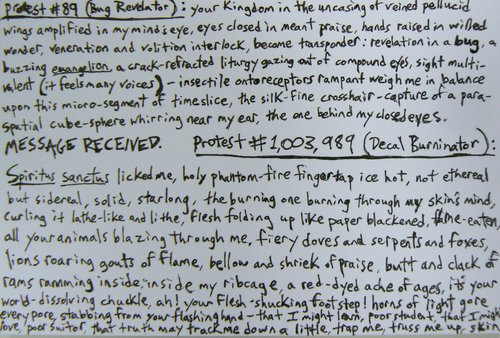 Protest #89 (Bug Revelator): your Kingdom in the uncasing of veined pellucid
wings amplified in my mind's eye, eyes closed in meant praise, hands raised in willed
wonder, veneration and volition interlock, become tansponder: revelation in a bug, a
buzzing evangelion, a crack-refracted liturgy gazing out of compound eyes, sight multi-
valent (it feels many voices) – insectile ontoreceptors rampant weigh me in balance
upon this micro-segment of timeslice, the silk-fine crosshair-capture of a para-
spatial cube-sphere whirring near my ear, the one behind my closed eyes.
MESSAGE RECEIVED. Protest #1,003,989 (Decal Burninator):
Spiritus sanctus licked me, holy phantom-fire fingertap ice hot, not ethereal
but sidereal, solid, starlong, the burning one burning through my skin's mind,
curling it lathe-like and lithe, flesh folding up like paper blackened, flame-eaten,
all your animals blazing through me, fiery doves and serpents and foxes,
lions roaring gouts of flame, bellow and shriek of praise, butt and clack of
rams ramming inside, inside my ribcage, a red-dyed ache of ages, it's your
world-dissolving chuckle, ah! your flesh-shucking footstep! horns of light gore
every pore, stabbing from your flashing hand – that I might learn, poor student, that I might
love, poor suitor, that truth may track me down a little, trap me, truss me up, skin